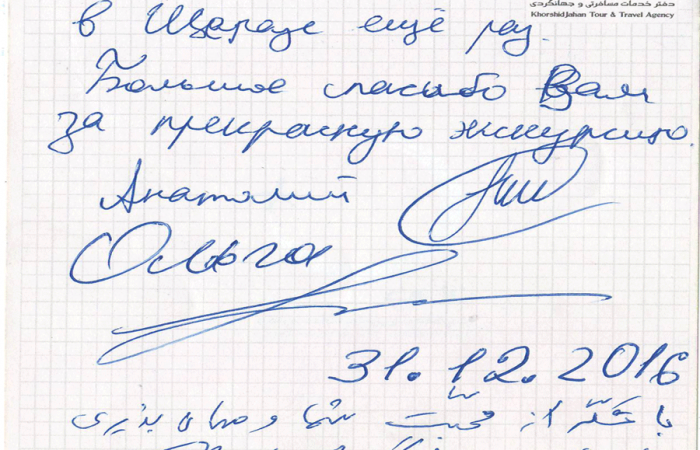 دفتر خدمات مسافرتی و جهانگردی
KhorshidJahan Tour & Travel Agency
в Шаразе ещё раз.
Большое спасибо Вам
за прекрасную экскурсию.
Анатолий
Ольга
31.12.2016
با تشکر از محبت شما و مهمان پذیری